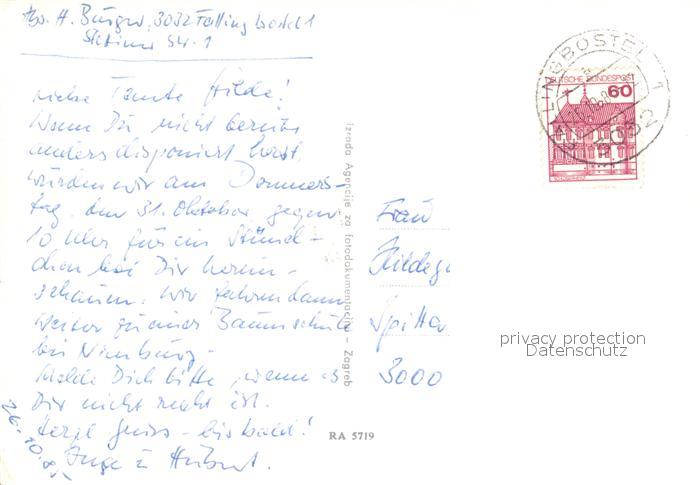 Abs. H. Burger, 3032 Fallingbostel 1
Stettiner Str. 1
Liebe Tante Hilde!
Wenn Du nicht bereits
anders disponiert hast,
würden wir am Donners-
tag, den 31. Oktober gegen
10 Uhr für ein Stünd-
chen bei Dir herein-
schauen. Wir fahren dann
weiter zu einer Baumschule
bei Nienburg.
Melde Dich bitte, wenn es
Dir nicht recht ist.
Herzl. Gruss - bis bald!
Inge u. Hubert.
26.10.85
Izrada Agencije za fotodokumentaciju - Zagreb
RA 5719
LINGBOSTEL 1
DEUTSCHE BUNDESPOST
60
Frau
Hildeg
Spitta
3000
privacy protection
Datenschutz